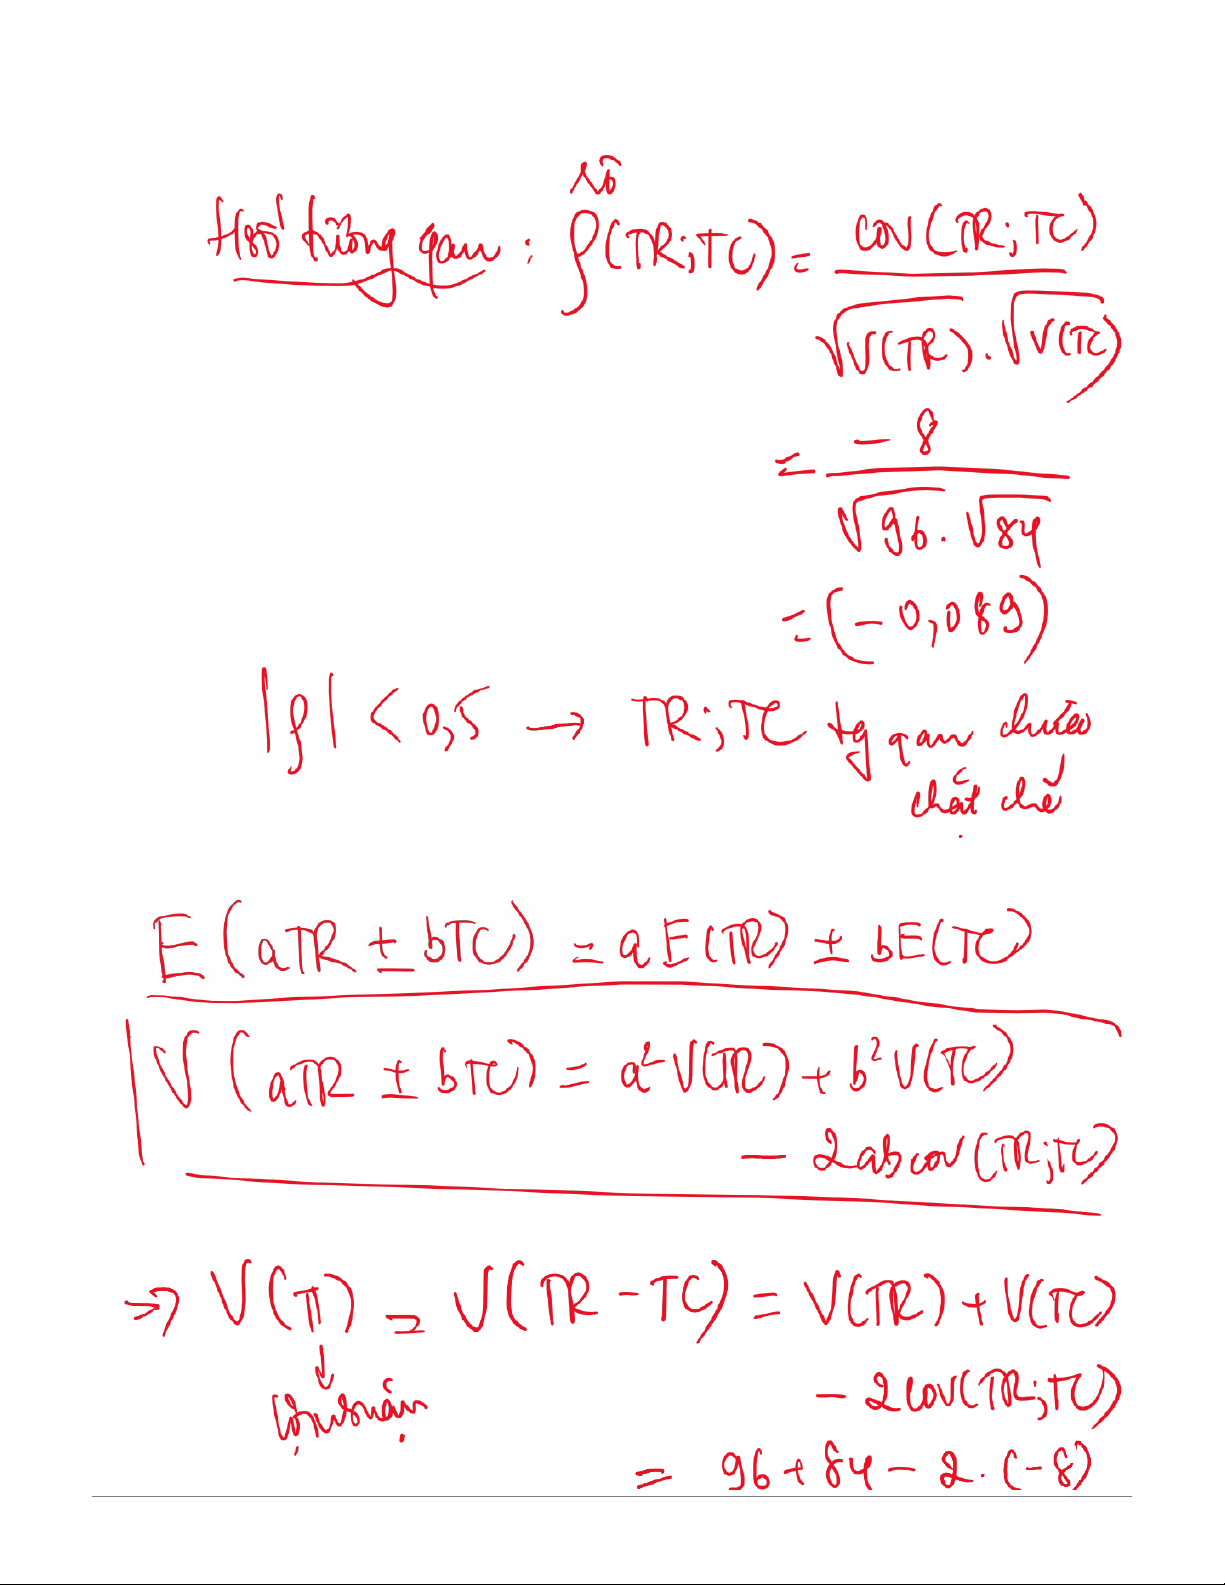 rô
Hsố tương quan : ρ(TR;TC) = cov(TR;TC) / √V(TR) . √V(TC)
= - 8 / √96 . √84
= (-0,089)
|ρ| < 0,5 → TR;TC tg quan
chặt chẽ
E(aTR ± bTC) = aE(TR) ± bE(TC)
V(aTR ± bTC) = a²V(TR) + b²V(TC)
- 2abcov(TR;TC)
=> V(π) = V(TR - TC) = V(TR) + V(TC)
↓
- 2cov(TR;TC)
lợi nhuận
= 96 + 84 - 2.(-8)